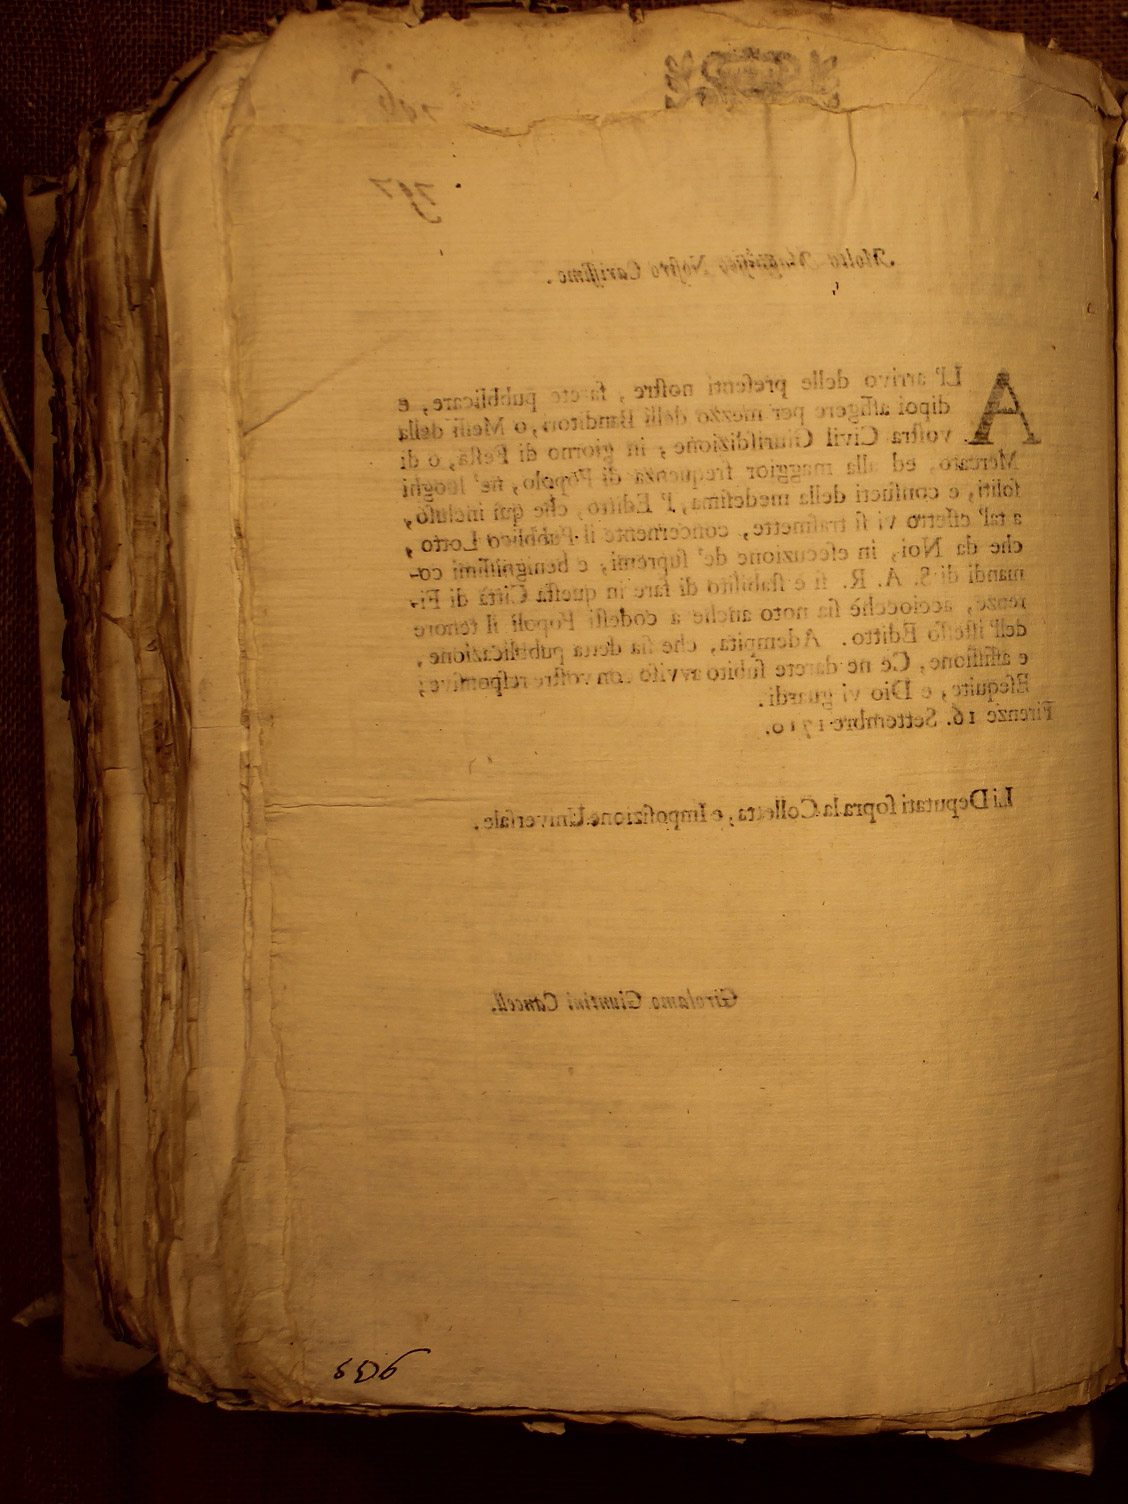 797
Molto Magnifico Nostro Carissimo.
ALl' arrivo delle presenti nostre, farete pubblicare, e
dipoi affigere per mezzo delli Banditori, o Messi della
vostra Civil Giurisdizione, in giorno di Festa, o di
Mercato, ed alla maggior frequenza di Popolo, ne' luoghi
soliti, e consueti della medesima, l' Editto, che qui incluso,
a tal' effetto vi si trasmette, concernente il Pubblico Lotto,
che da Noi, in esecuzione de' supremi, e benignissimi co-
mandi di S. A. R. si è stabilito di fare in questa Città di Fi-
renze, acciocchè sia noto anche a codesti Popoli il tenore
dell' istesso Editto. Adempita, che sia detta pubblicazione,
e affissione, Ce ne darete subito avviso con vostre responsive;
Eseguite, e Dio vi guardi.
Firenze 16. Settembre 1710.
Li Deputati sopra la Colletta, e Imposizione Universale.
Girolamo Giuntini Cancell.